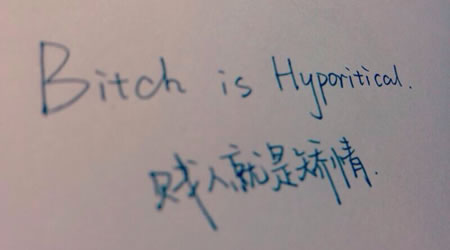 Bitch is Hyporitical.
贱人就是矫情.